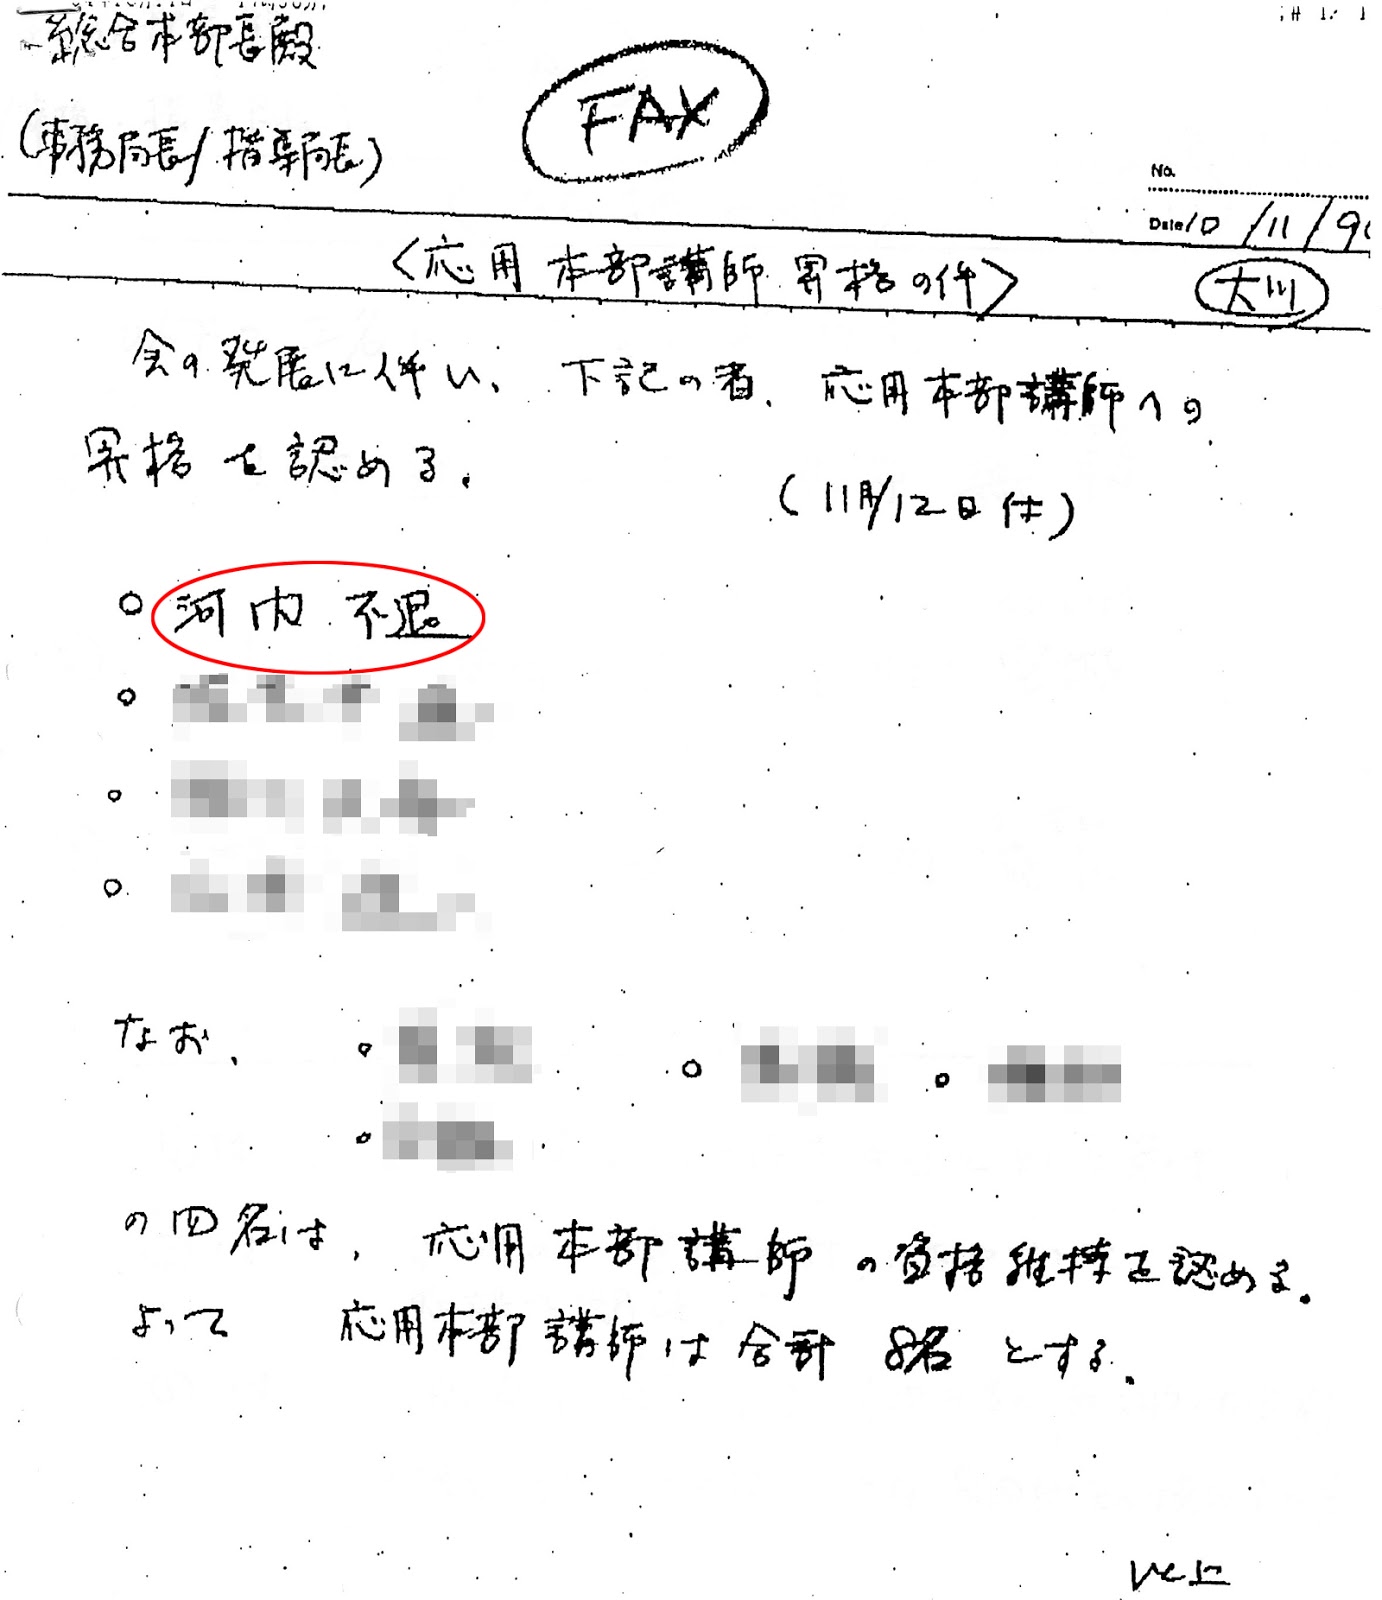 総合本部長殿
FAX
(事務局長/指導局長)
No.
Date 10/11/9
〈応用本部講師昇格の件〉
大川
会の発展に伴い、下記の者、応用本部講師への
昇格を認める。
(11月/12日付)
○ 河内 不退
○
○
○
なお、 ○ ○ ○
○
の四名は、応用本部講師の資格維持を認める。
よって 応用本部講師は合計 8名 とする。
以上